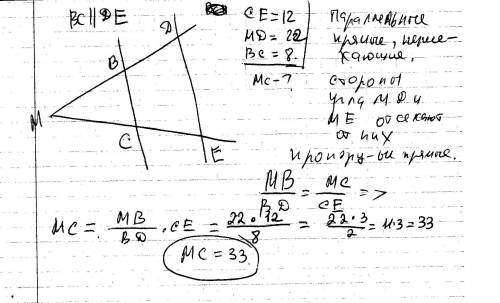 BC || DE
CE = 12
MD = 22
BC = 8.
MC - ?
Параллельные
прямые, пересе-
кающие,
стороны
угла MD и
ME отсекают
от них
пропорц-ые прямые.
D
B
M
C
E
MB/BD = MC/CE =>
MC = MB/BD · CE = 22·12/8 = 22·3/2 = 11·3 = 33
MC = 33